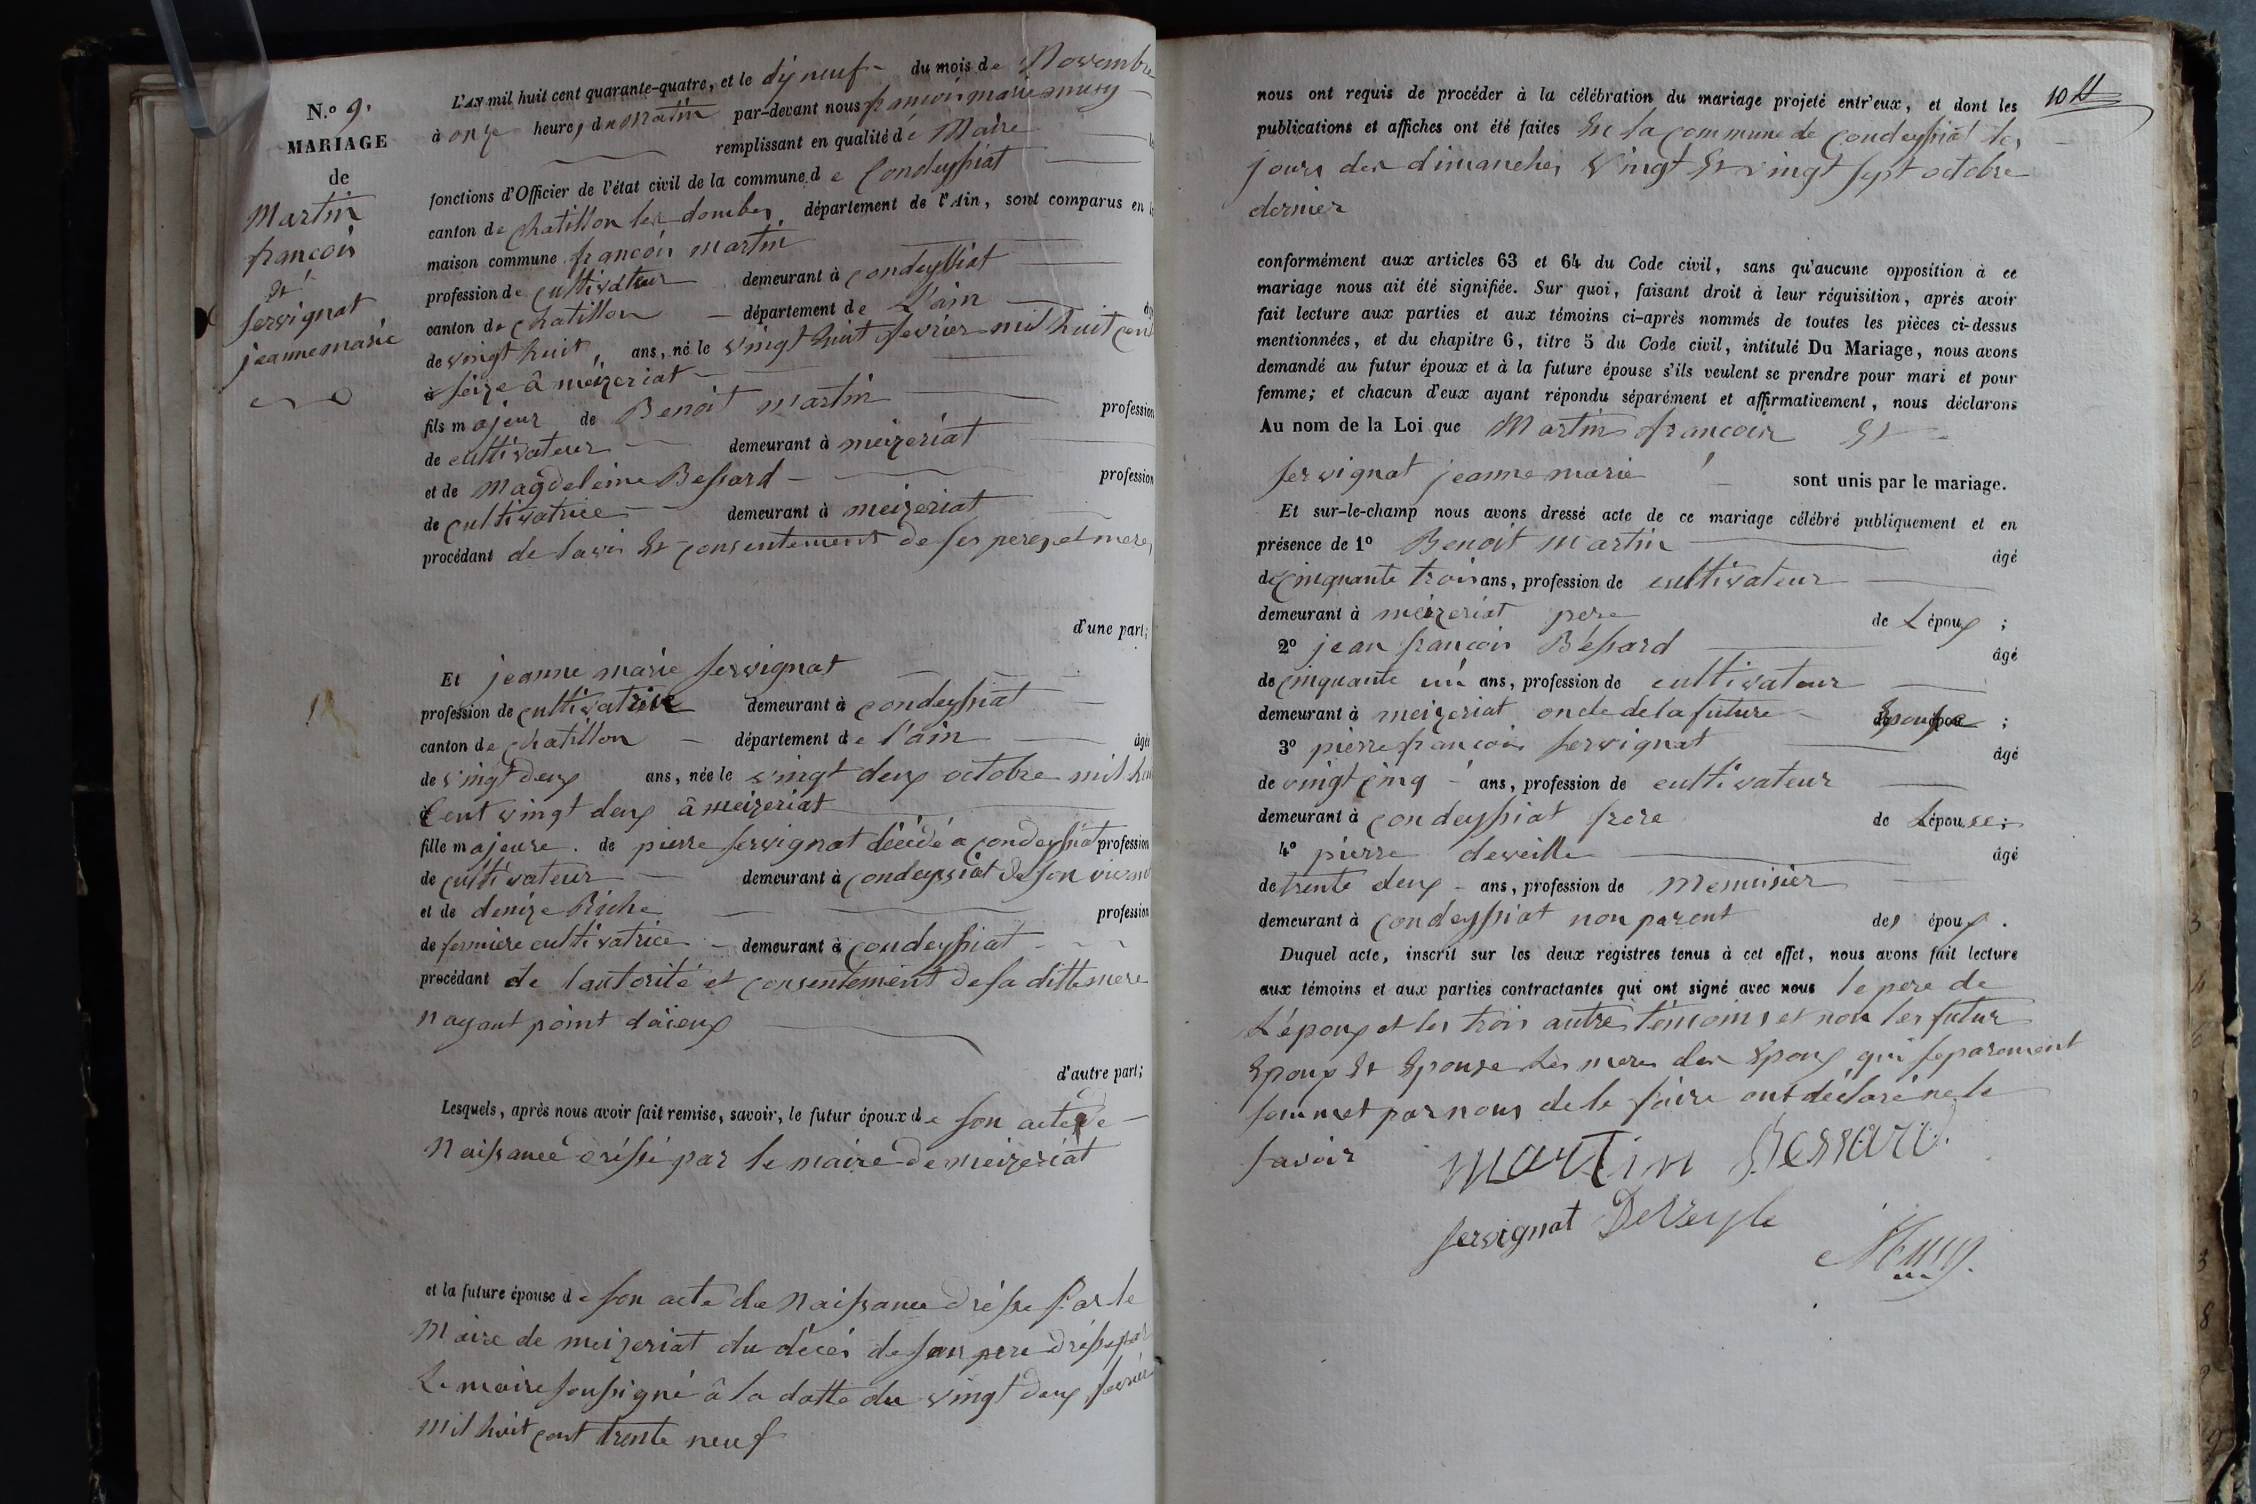 N.o 9.
MARIAGE
de
Martin
françois
et
servignat
jeanne marie
L'AN mil huit cent quarante-quatre, et le dix neuf du mois de Novembre
à onze heures du matin par-devant nous françois marie musy
remplissant en qualité de Maire les
fonctions d'Officier de l'état civil de la commune de Condeyssiat
canton de chatillon les dombes, département de l'Ain, sont comparus en la
maison commune françois martin
profession de cultivateur demeurant à condeyssiat
canton de chatillon département de L'ain âgé
de vingt huit ans, né le vingt huit fevrier mil huit cent
seize â meizeriat
fils majeur de Benoit martin profession
de cultivateur demeurant à meizeriat
et de magdeleine Bessard profession
de cultivatrice demeurant à meizeriat
procédant de lavis et consentement de ses peres et meres
d'une part;
Et jeanne marie servignat
profession de cultivatrice demeurant à condeyssiat
canton de chatillon département de l'ain âgée
de vingt deux ans, née le vingt deux octobre mil huit
Cent vingt deux â meizeriat
fille majeure. de pierre servignat décédé a condeyssiat profession
de cultivateur demeurant à condeyssiat de son vivant
et de denize Riche profession
de fermiere cultivatrice demeurant à condeyssiat
procédant de lautorité et consentement de sa ditte mere
nayant point daieux
d'autre part;
Lesquels, après nous avoir fait remise, savoir, le futur époux de son acte de
Naissance dréssé par le maire de meizeriat
et la future épouse de son acte de Naissance dréssé Par le
Maire de meizeriat du décés de son pere dréssé par
Le maire soussigné â la datte du vingt deux fevrier
mil huit cent trente neuf
10
nous ont requis de procéder à la célébration du mariage projeté entr'eux, et dont les
publications et affiches ont été faites En la commune de Condeyssiat les
jours des dimanches vingt Et vingt sept octobre
dernier
conformément aux articles 63 et 64 du Code civil, sans qu'aucune opposition à ce
mariage nous ait été signifiée. Sur quoi, faisant droit à leur réquisition, après avoir
fait lecture aux parties et aux témoins ci-après nommés de toutes les pièces ci-dessus
mentionnées, et du chapitre 6, titre 5 du Code civil, intitulé Du Mariage, nous avons
demandé au futur époux et à la future épouse s'ils veulent se prendre pour mari et pour
femme; et chacun d'eux ayant répondu séparément et affirmativement, nous déclarons
Au nom de la Loi que Martin françois Et
servignat jeanne marie sont unis par le mariage.
Et sur-le-champ nous avons dressé acte de ce mariage célébré publiquement et en
présence de 1o Benoit martin âgé
de cinquante trois ans, profession de cultivateur
demeurant à meizeriat pere de L'époux ;
2o jean françois Béssard âgé
de cinquante un ans, profession de cultivateur
demeurant à meizeriat oncle de la future Epouse ;
3o pierre francois servignat âgé
de vingt cinq ans, profession de cultivateur
demeurant à condeyssiat frere de L'épouse;
4o pierre deveille âgé
de trente deux ans, profession de Menuisier
demeurant à condeyssiat non parent des époux.
Duquel acte, inscrit sur les deux registres tenus à cet effet, nous avons fait lecture
aux témoins et aux parties contractantes qui ont signé avec nous le pere de
L'époux et les trois autres témoins et non les futur
Epoux Et Epouse Les meres des Epoux qui separement
sommet par nous de le faire ont déclaré ne le
savoir
martin Bessard.
servignat DeVeyle
Musy.